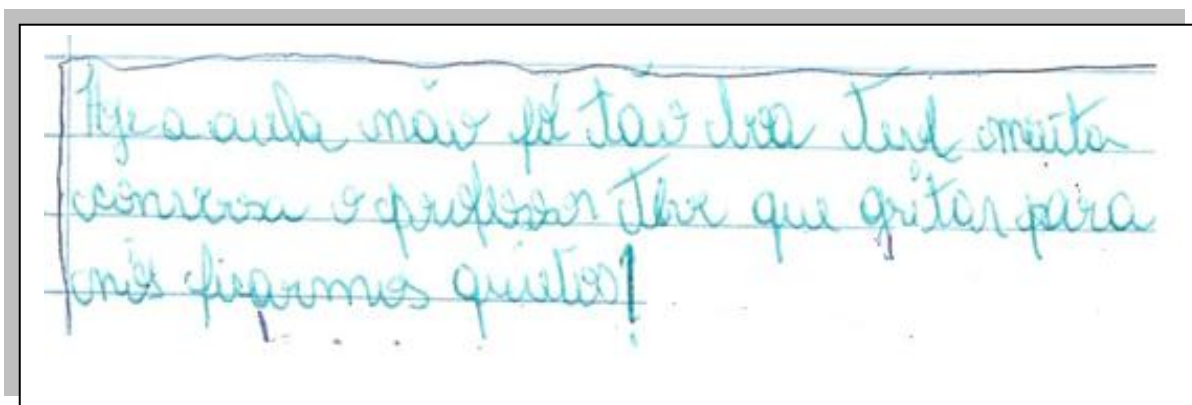 Hje a aula não foi tão boa Teve muita
conversa o professor Teve que gritar para
nós ficarmos quietos!